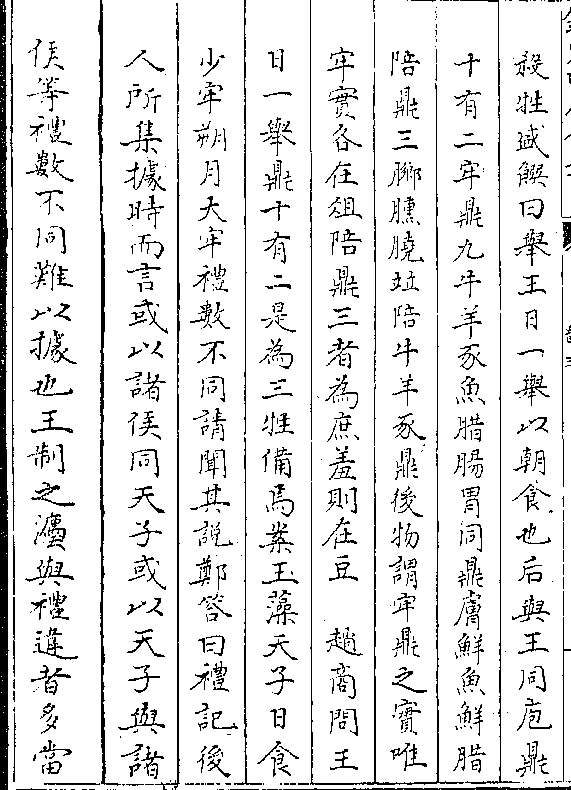 殺牲盛饌曰舉王日一舉以朝食也后與王同庖鼎
十有二牢鼎九牛羊豕魚腊腸胃同鼎膚鮮魚鮮腊
陪鼎三膷臐膮竝陪牛羊豕鼎後物謂牢鼎之實唯
牢實各在俎陪鼎三者為庶羞則在豆　趙商問王
日一舉鼎十有二是為三牲備焉案玉藻天子日食
少牢朔月大牢禮數不同請聞其說鄭答曰禮記後
人所集據時而言或以諸侯同天子或以天子與諸
侯等禮數不同難以據也王制之灋與禮違者多當